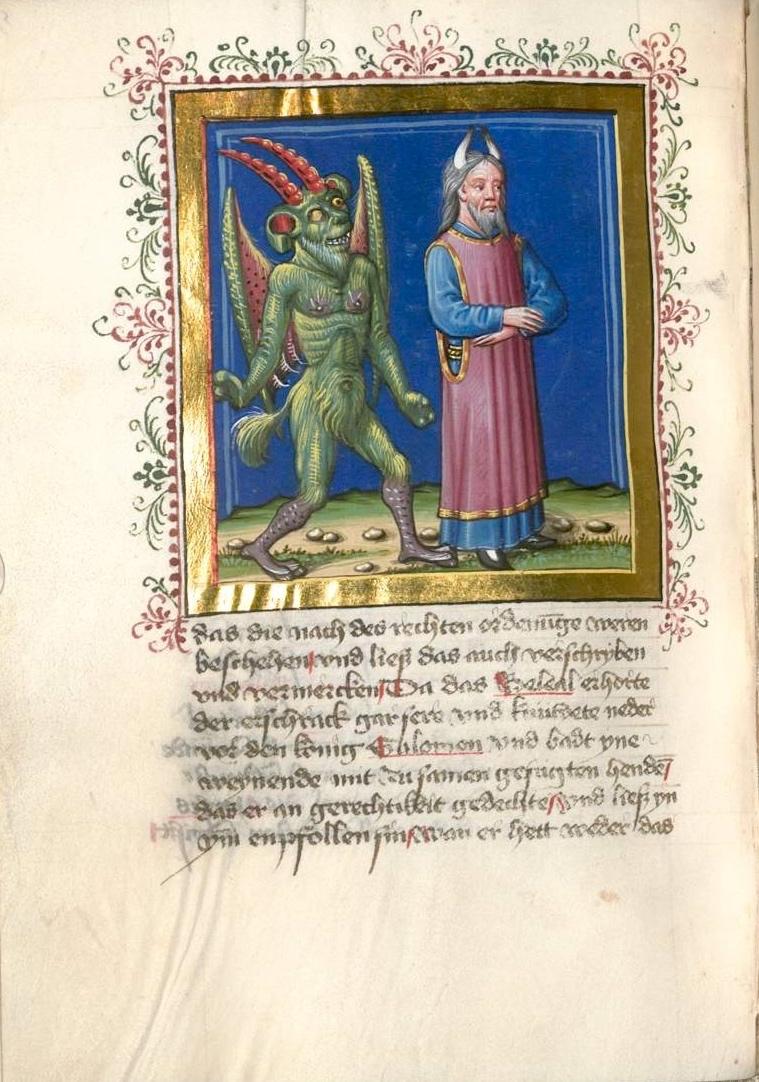 das die nach des rechten ordenu̅ge weren
beschehen vnd ließ das auch verschryben
vnd vermercken Da das Beleal erhorte
der erschrack gar sere vnd knuwete neder
vor den konig Salomon vnd badt yne
weynende mit zu samen gefugten hende̅
das er an gerechtikeit gedechte vnd ließ yn
ym enpfollen sin wan er hett weder das